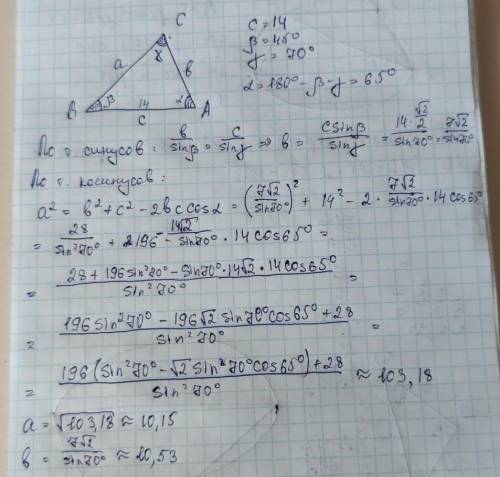 C
c = 14
β = 45°
γ = 70°
α = 180° - β - γ = 65°
a γ b
B β 14 α A
c
По т. синусов: b/sinβ = c/sinγ ⇒ b = c sinβ/sinγ = (14 · √2/2)/sin70° = 7√2/sin70°
По т. косинусов:
a² = b² + c² - 2bc cosα = (7√2/sin70°)² + 14² - 2 · 7√2/sin70° · 14 cos65°
= 28/sin²70° + 196 - 14√2/sin70° · 14 cos65° =
= (28 + 196 sin²70° - sin70° · 14√2 · 14 cos65°)/sin²70° =
= (196 sin²70° - 196√2 sin70° cos65° + 28)/sin²70° =
= (196(sin²70° - √2 sin70° cos65°) + 28)/sin²70° ≈ 103,18
a = √103,18 ≈ 10,15
b = 7√2/sin70° ≈ 10,53